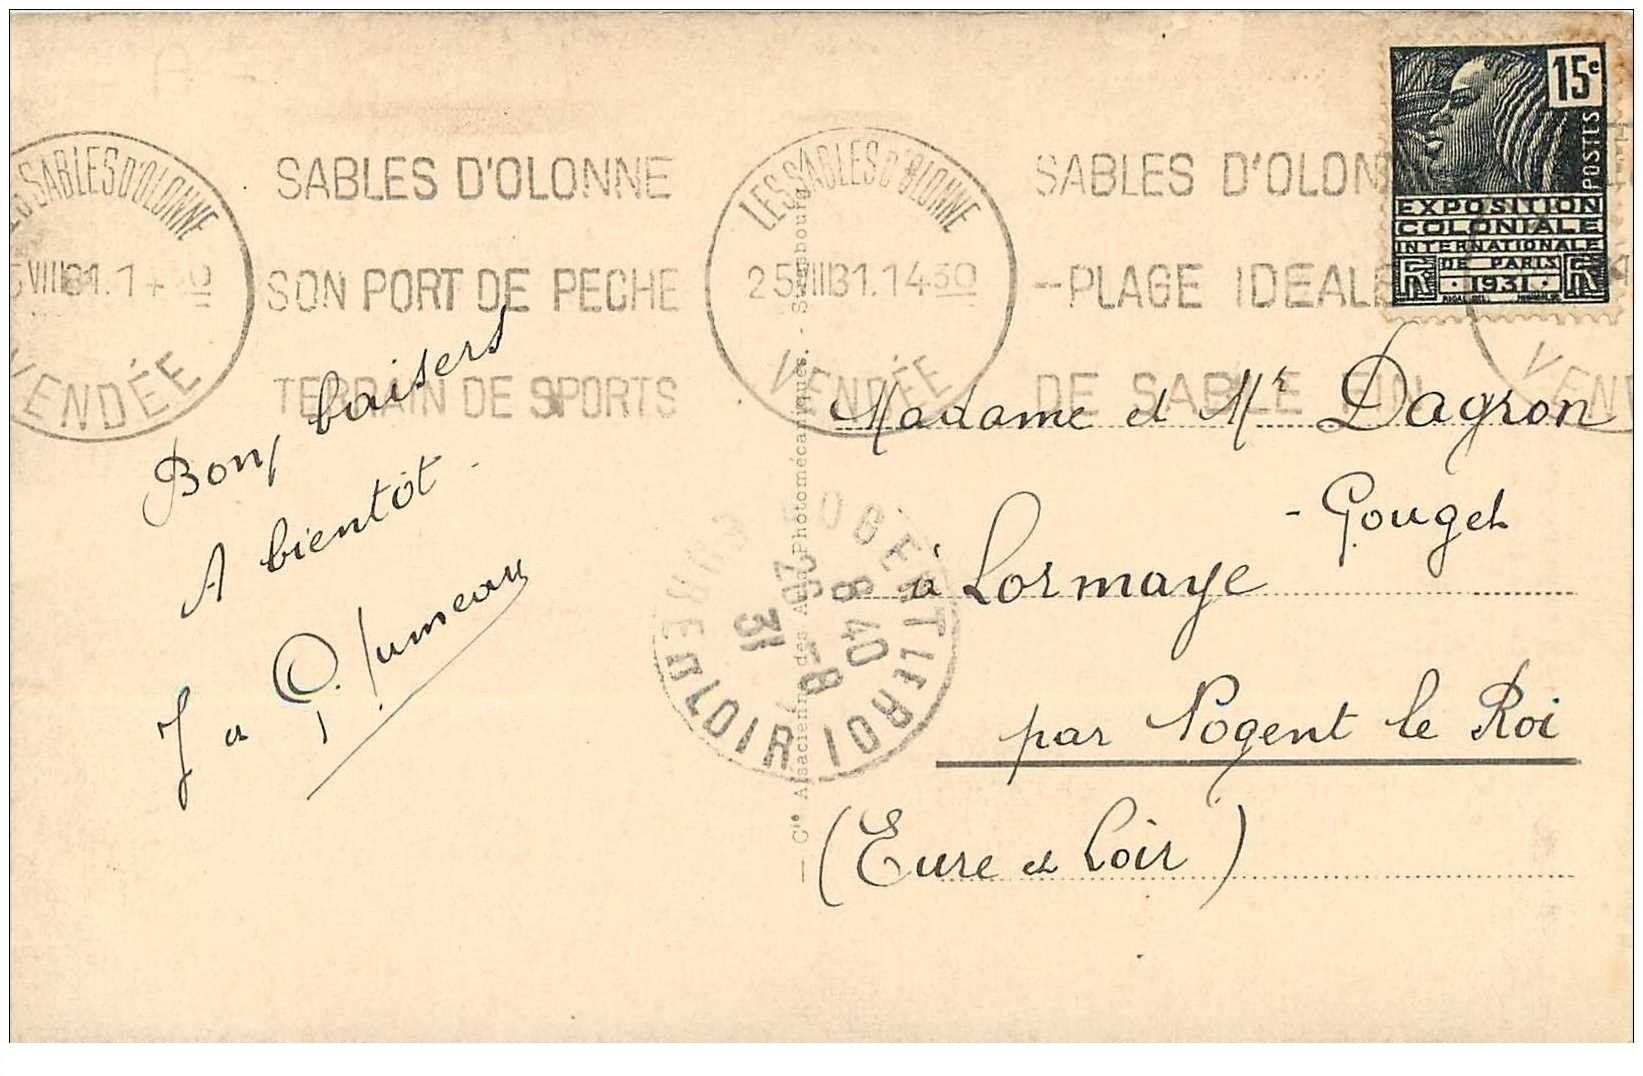 LES SABLES D'OLONNE
VIII31.1
VENDÉE
SABLES D'OLONNE
SON PORT DE PECHE
TERRAIN DE SPORTS
LES SABLES D'OLONNE
25VIII31.1430
VENDÉE
SABLES D'OLON
-PLAGE IDEALE
DE SABLE FIN
VEN
15c
POSTES
EXPOSITION
COLONIALE
INTERNATIONALE
DE PARIS
RF · 1931 · RF
Bons baisers
A bientôt.
J et P. Jumeau
— Cie Alsacienne des Arts Photomécaniques. - Strasbourg
8 40
31
EURE ET LOIR
Madame et Mr Dagron
- Gouget
à Lormaye
par Nogent le Roi
(Eure et Loir)